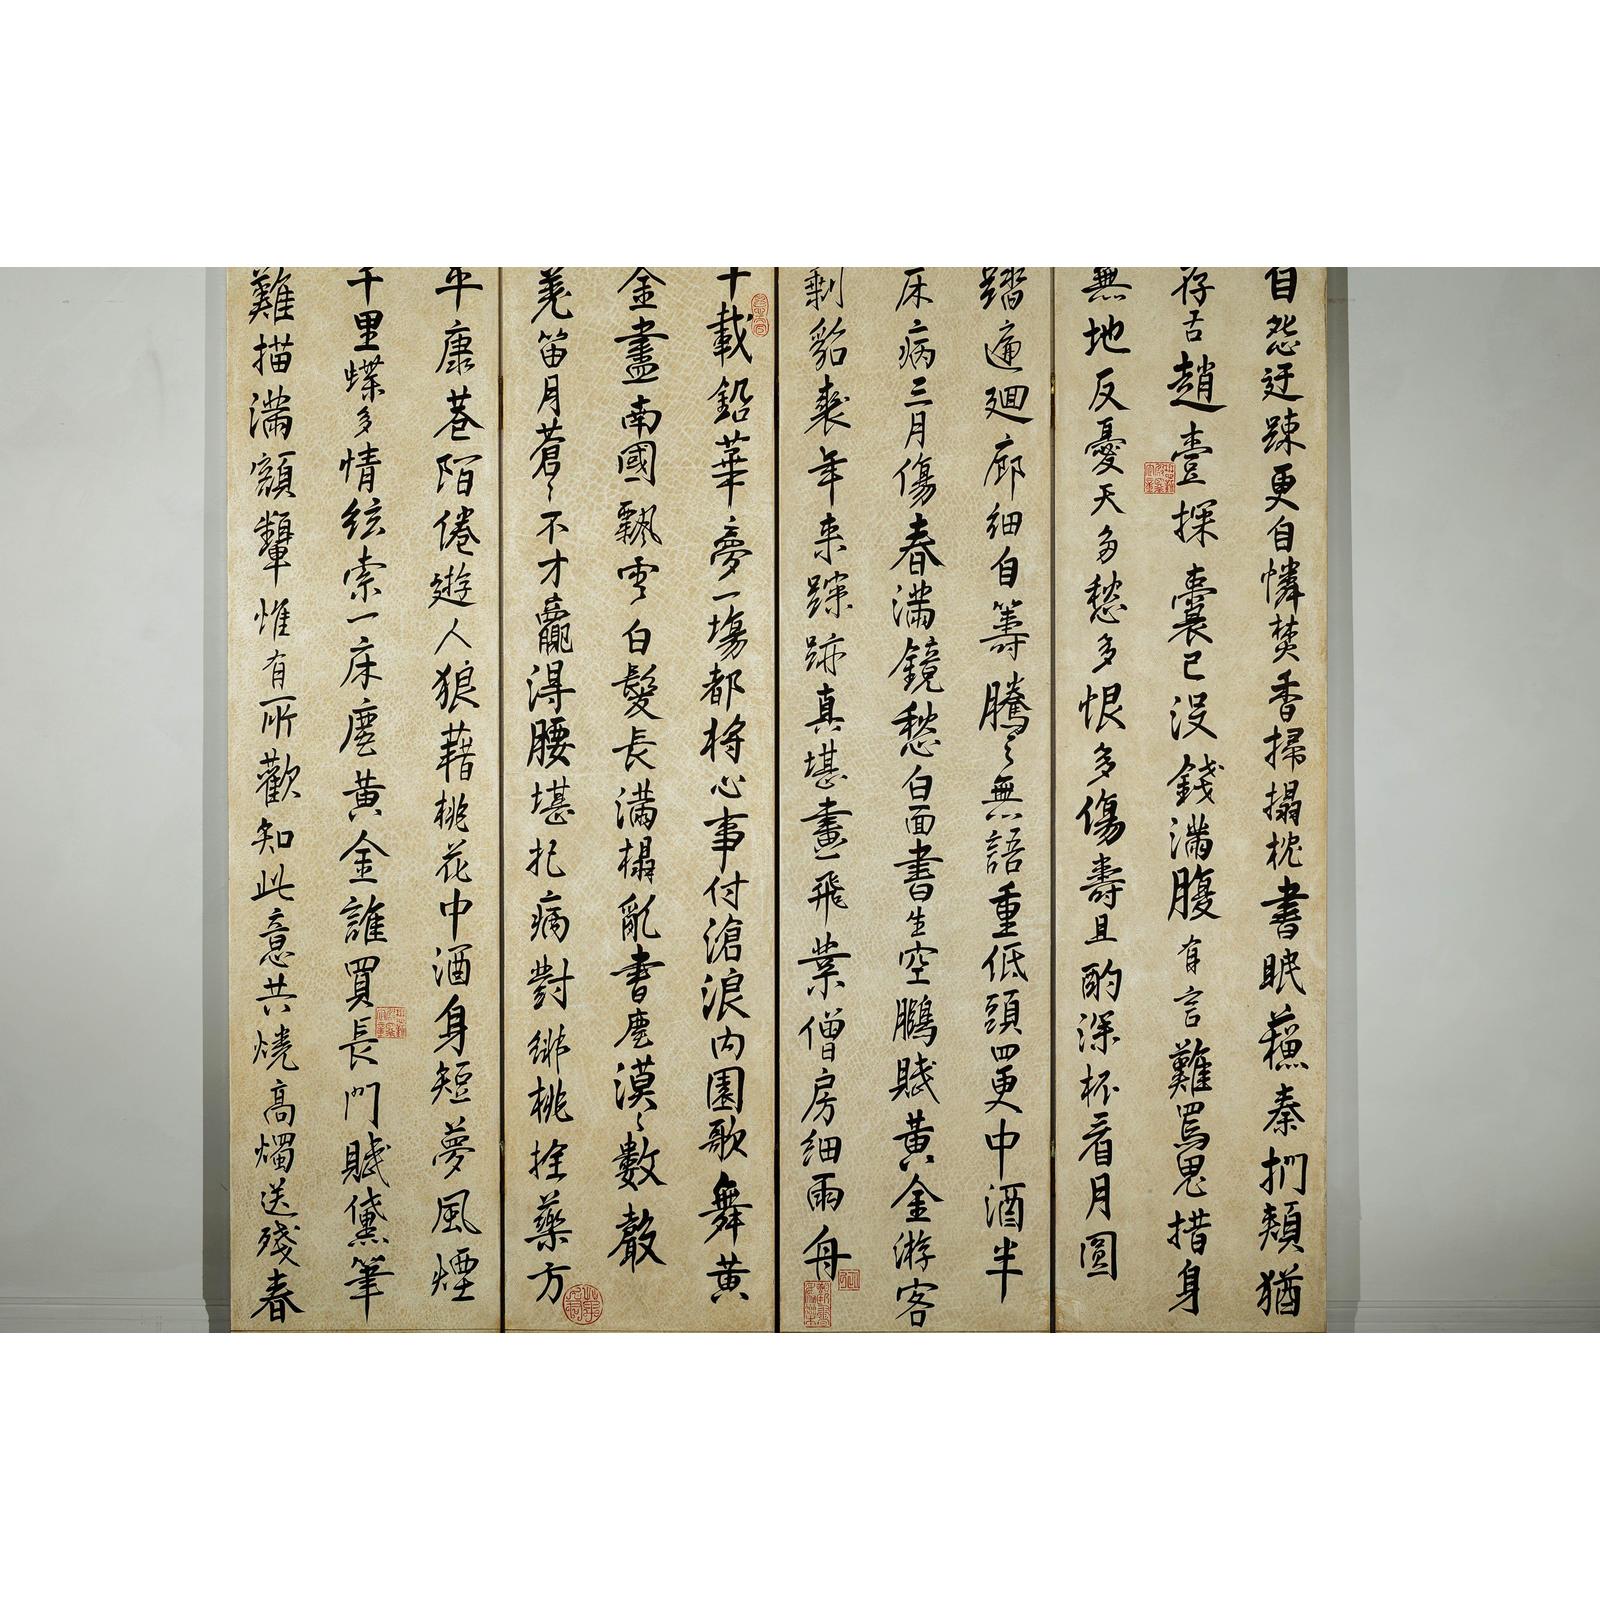 自怨迂疎更自憐焚香掃搨枕書眠蘓秦捫頰猶
存舌趙壹探囊已沒錢滿腹有言難罵鬼措身
無地反憂天多愁多恨多傷壽且酌深杯看月圓
踏遍廻廊細自籌騰〻無語重低頭四更中酒半
床病三月傷春滿鏡愁白面書生空鵬賦黃金游客
剩貂裘年來蹤跡真堪畫一飛葉僧房細雨舟
十載鉛華夢一場都將心事付滄浪內園歌舞黃
金盡南國飄零白髮長滿榻亂書塵漠〻數聲
羌笛月蒼〻不才贏得腰堪把病對緋桃拴藥方
平康巷陌倦遊人狼藉桃花中酒身短夢風煙
千里蝶多情絃索一床塵黃金誰買長門賦黛筆
難描滿額顰惟有所歡知此意共燒高燭送殘春